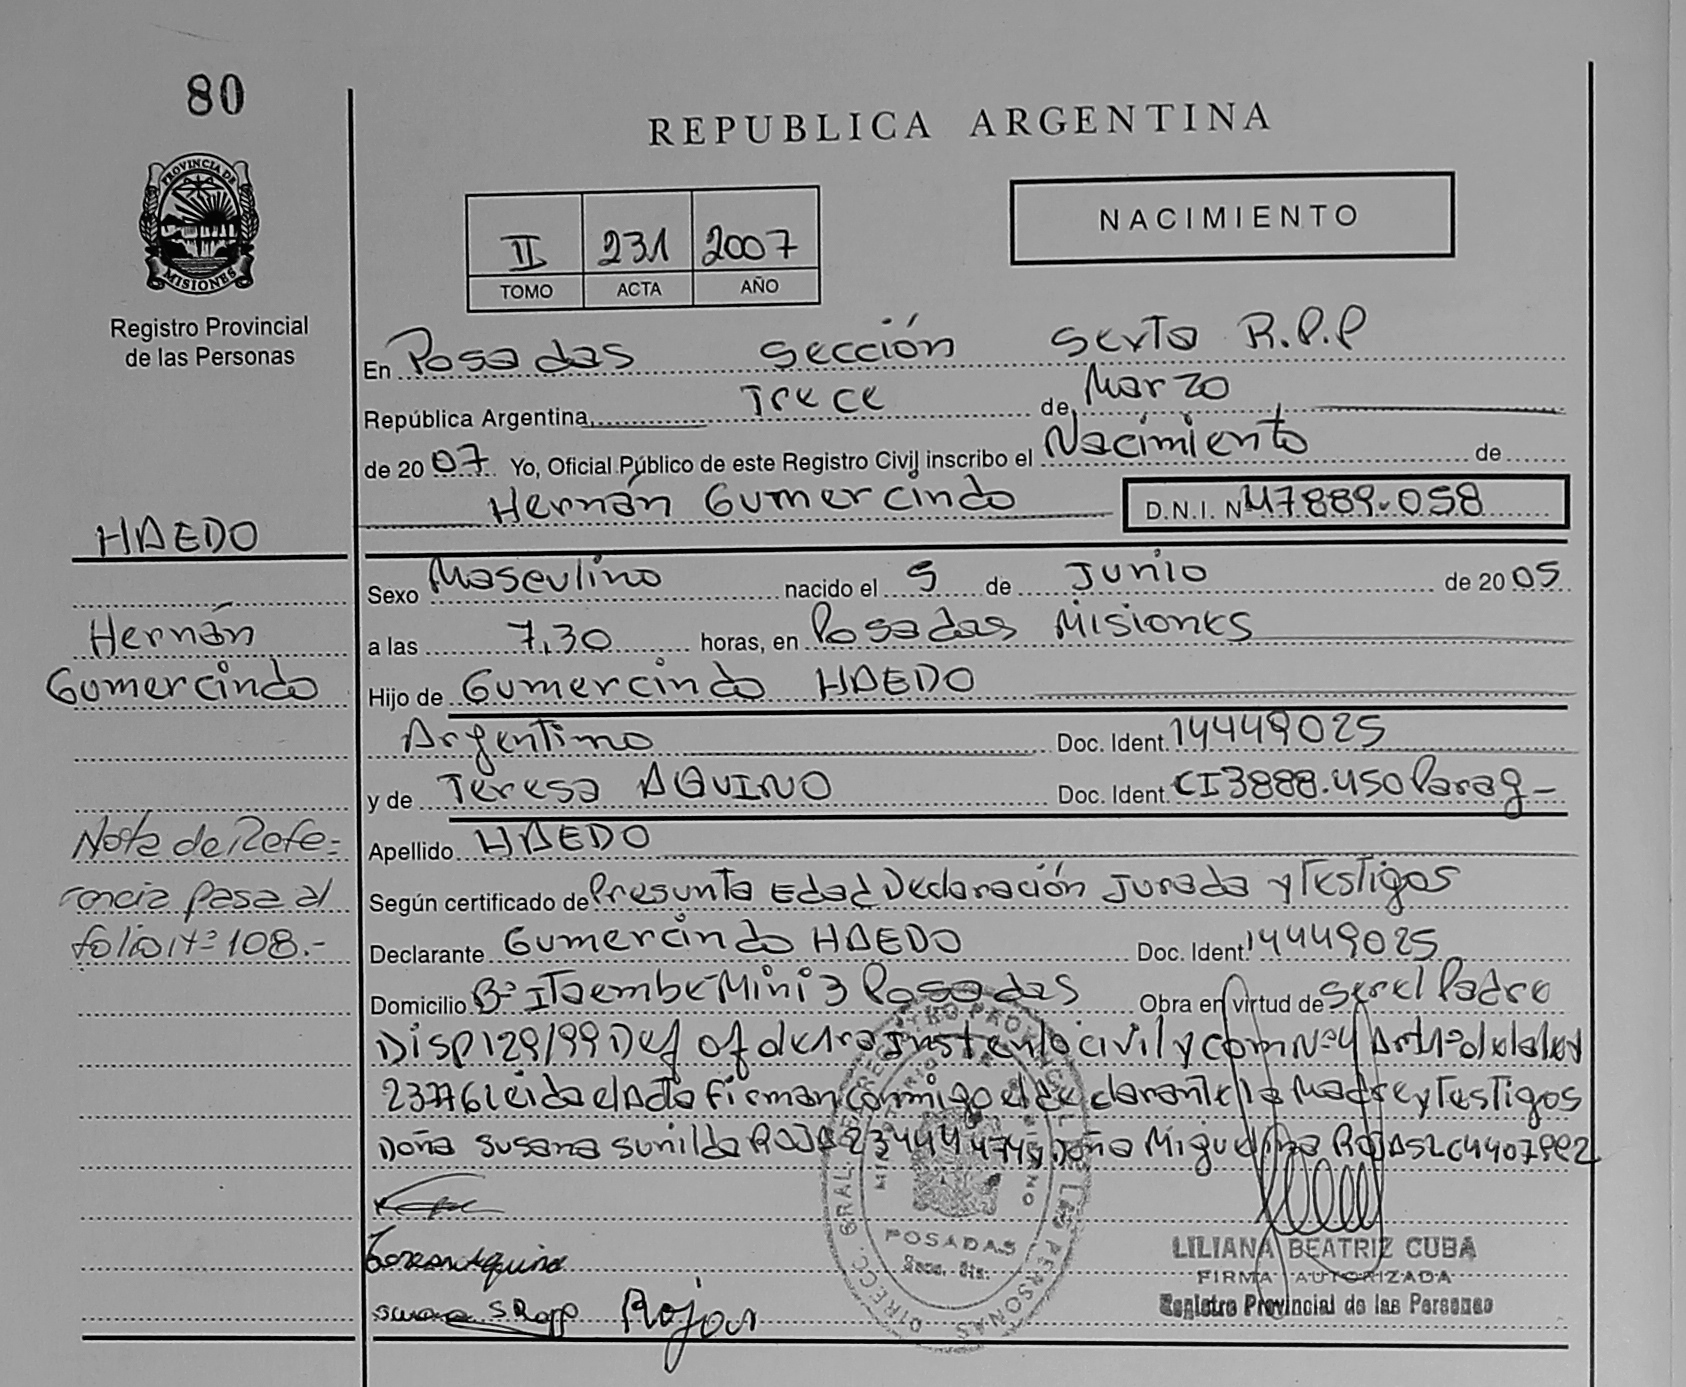 80
REPUBLICA ARGENTINA
PROVINCIA DE
MISIONES
Registro Provincial
de las Personas
II 231 2007
TOMO ACTA AÑO
NACIMIENTO
En Posadas Sección Sexta R.P.P
República Argentina, Trece de Marzo
de 2007 Yo, Oficial Público de este Registro Civil inscribo el Nacimiento de
Hernán Gumercindo D.N.I. Nº 47889.058
HAEDO
Sexo Masculino nacido el 5 de Junio de 2005
Hernán
Gumercindo
a las 7,30 horas, en Posadas Misiones
Hijo de Gumercindo HAEDO
Argentino Doc. Ident. 14449025
y de Teresa AQUINO Doc. Ident. CI3888.450 Parag-
Nota de Refe=
rencia pasa al
folio Nº 108.-
Apellido HAEDO
Según certificado de Presunta Edad Declaración Jurada y Testigos
Declarante Gumercindo HAEDO Doc. Ident. 14449025
Domicilio Bº Itaembe Mini 3 Posadas Obra en virtud de ser el Padre
Disp 129/99 civil y com Nº 4
Leida el Acta firman conmigo el declarante la Madre y Testigos
Doña Susana Sunilda Doña Miguelina Rojas LC4407992
Teresa Aquino
Rojas
POSADAS
LILIANA BEATRIZ CUBA
FIRMA AUTORIZADA
Registro Provincial de las Personas